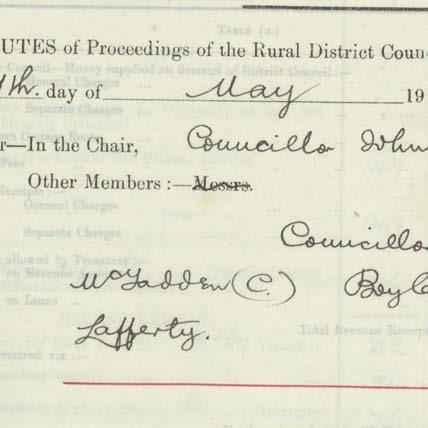 UTES of Proceedings of the Rural District Coun
th. day of May 19
r—In the Chair, Councillor John
Other Members :— Messrs.
Councillo
McFadden (C.) Boyle
Lafferty.